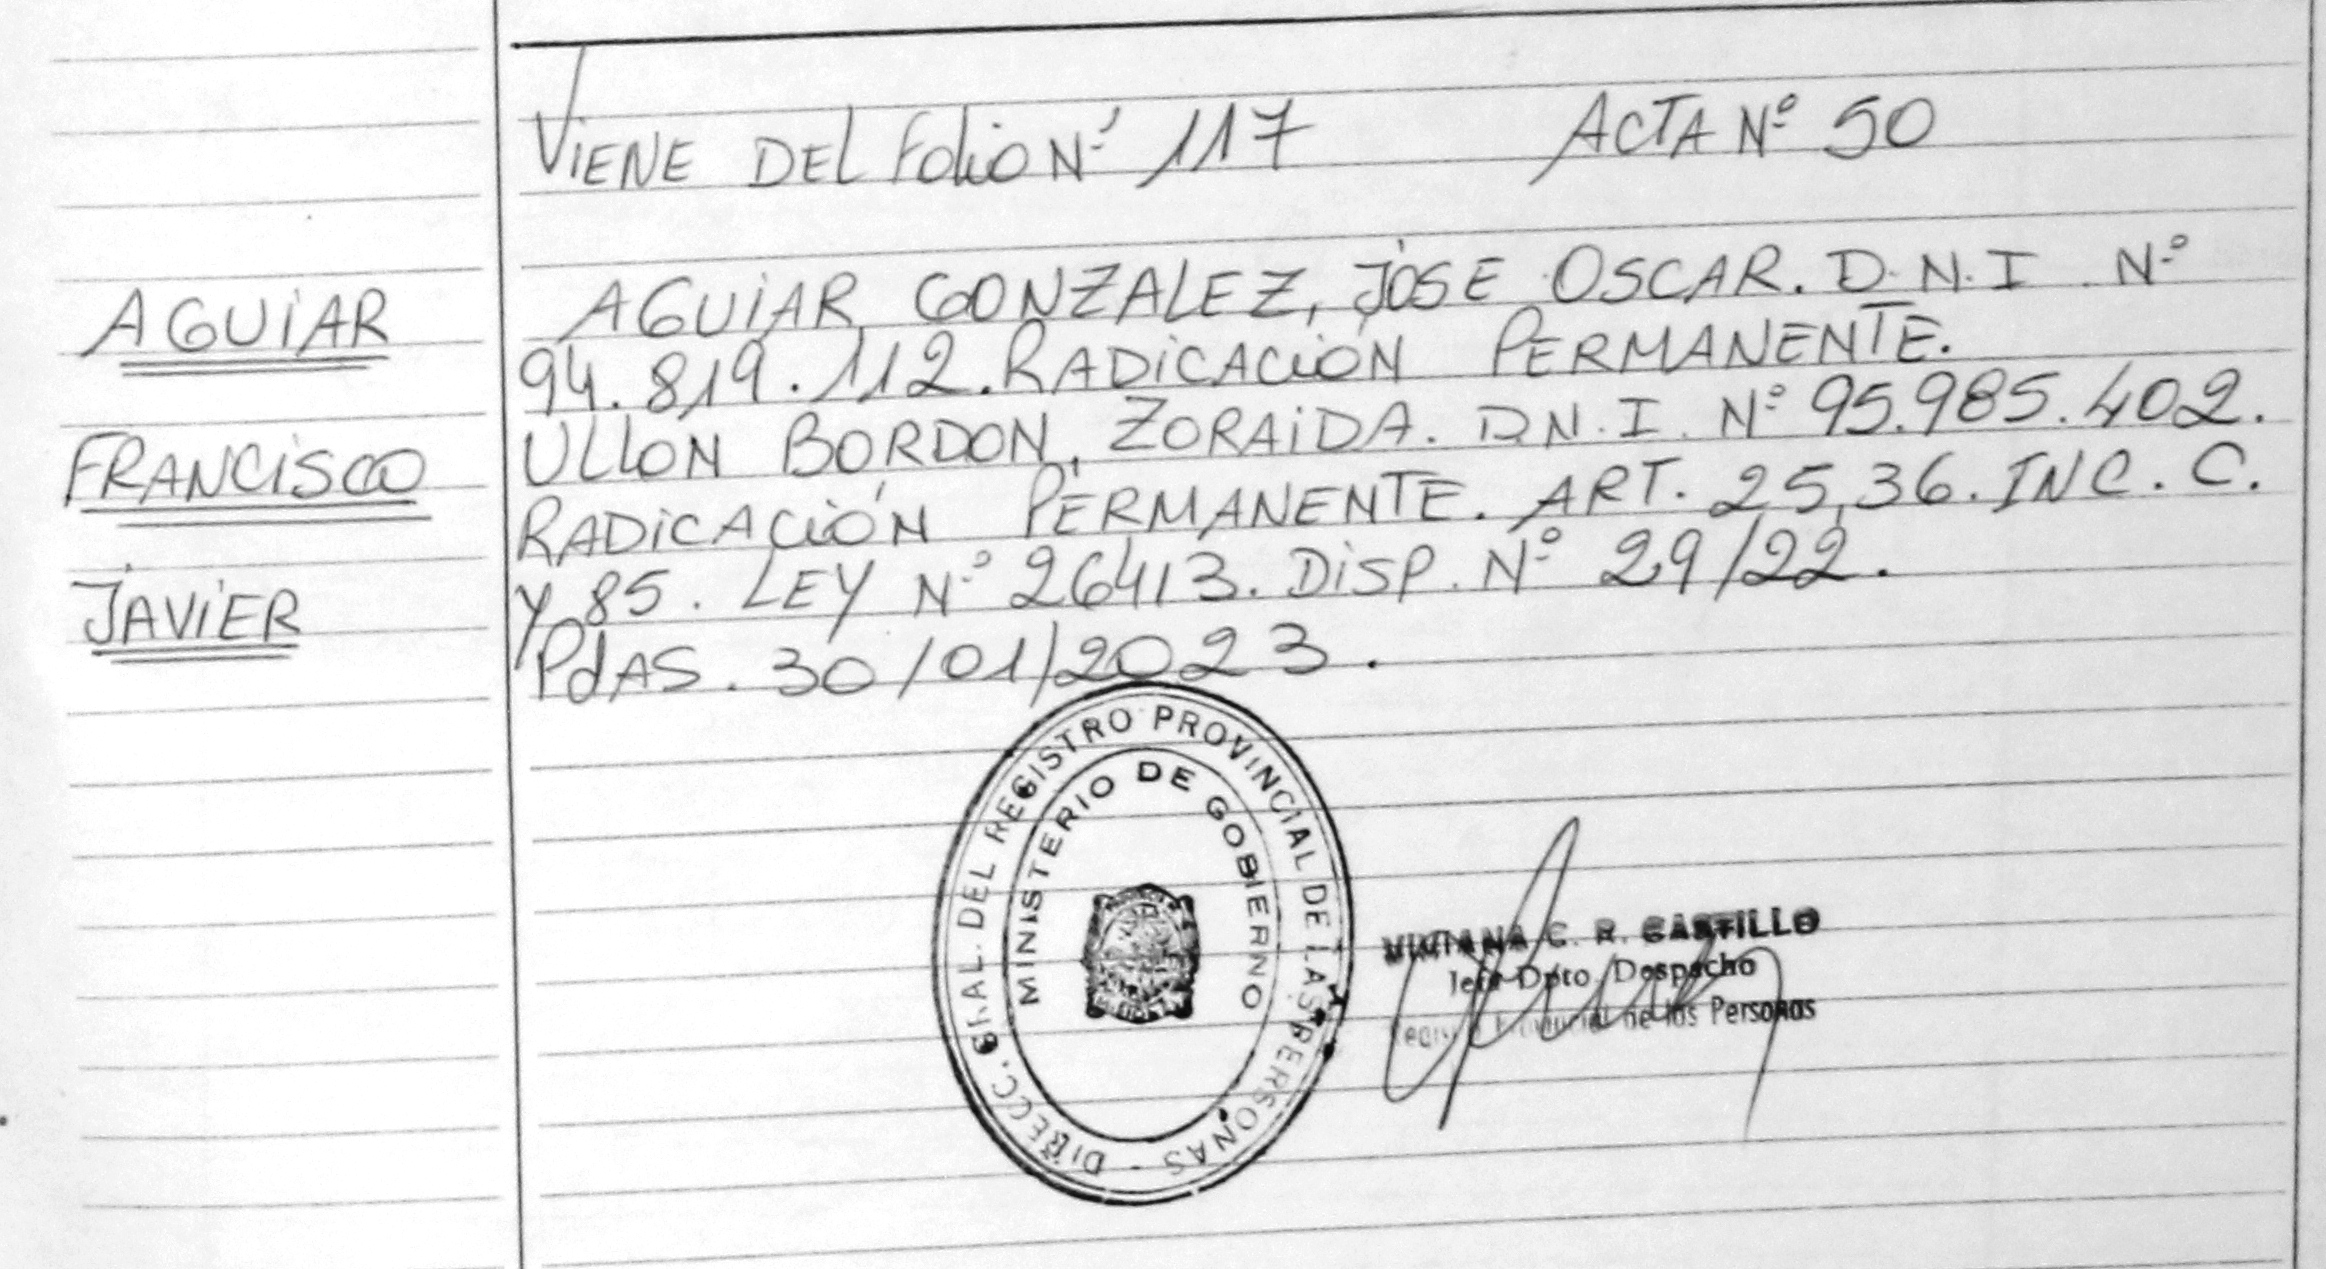 VIENE DEL FOLIO Nº 117 ACTA Nº 50
AGUIAR
FRANCISCO
JAVIER
AGUIAR GONZALEZ, JOSE OSCAR. D.N.I Nº
94.819.112. RADICACIÓN PERMANENTE.
ULLON BORDON, ZORAIDA. D.N.I. Nº 95.985.402.
RADICACIÓN PERMANENTE. ART. 25,36. INC. C.
Y 85. LEY Nº 26413. DISP. Nº 29/22.
PdAS. 30/01/2023.
DIRECC. GRAL. DEL REGISTRO PROVINCIAL DE LAS PERSONAS -
MINISTERIO DE GOBIERNO
VIVIANA C. R. CASTILLO
Jefe Dpto. Despacho
Registro Provincial de las Personas